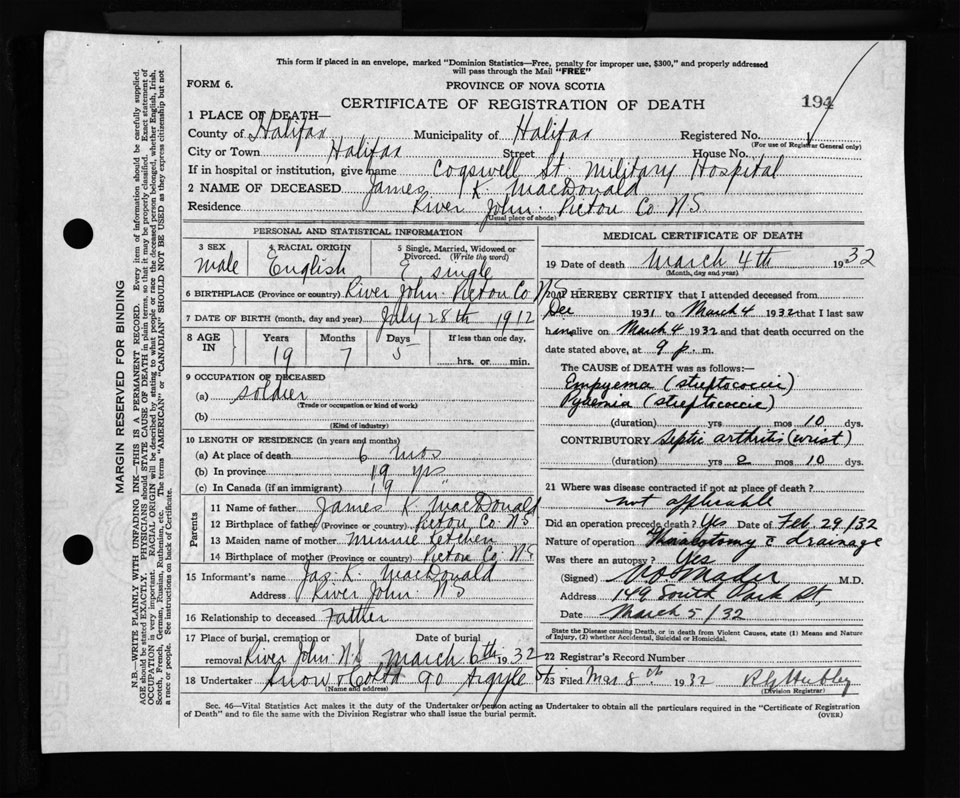 This form if placed in an envelope, marked "Dominion Statistics—Free, penalty for improper use, $300," and properly addressed
will pass through the Mail "FREE"
FORM 6.
PROVINCE OF NOVA SCOTIA
CERTIFICATE OF REGISTRATION OF DEATH
194
1 PLACE OF DEATH—
County of Halifax Municipality of Halifax Registered No.
(For use of Registrar General only)
City or Town Halifax Street House No.
If in hospital or institution, give name Cogswell St. Military Hospital
2 NAME OF DECEASED James K. MacDonald
Residence River John. Pictou Co N.S
(Usual place of abode)
PERSONAL AND STATISTICAL INFORMATION
3 SEX male
4 RACIAL ORIGIN English
5 Single, Married, Widowed or Divorced. (Write the word) single
6 BIRTHPLACE (Province or country) River John. Pictou Co N.S
7 DATE OF BIRTH (month, day and year) July 28th 1912
8 AGE IN Years Months Days If less than one day,
19 7 5 hrs. or min.
9 OCCUPATION OF DECEASED
(a) soldier
(Trade or occupation or kind of work)
(b)
(Kind of industry)
10 LENGTH OF RESIDENCE (in years and months)
(a) At place of death 6 mos
(b) In province 19 yrs
(c) In Canada (if an immigrant) 19 "
Parents
11 Name of father James K. MacDonald
12 Birthplace of father (Province or country) Pictou Co N.S
13 Maiden name of mother Minnie
14 Birthplace of mother (Province or country) Pictou Co. N.S
15 Informant's name Jas. K. MacDonald
Address River John N S
16 Relationship to deceased Father
17 Place of burial, cremation or removal River John. N.S Date of burial March 6th 1932
18 Undertaker Snow & Co Ltd 90 Argyle St.
(Name and address)
MEDICAL CERTIFICATE OF DEATH
19 Date of death March 4th 1932
(Month, day and year)
20 I HEREBY CERTIFY that I attended deceased from
Dec 1931 to March 4 1932 that I last saw
him alive on March 4 1932 and that death occurred on the
date stated above, at 9 p. m.
The CAUSE OF DEATH was as follows:—
Empyema (streptococcic)
Pyaemia (streptococcic)
(duration) yrs mos 10 dys.
CONTRIBUTORY Septic arthritis (wrist)
(duration) yrs 2 mos 10 dys.
21 Where was disease contracted if not at place of death?
not applicable
Did an operation precede death? Yes Date of Feb. 29/32
Nature of operation Thoracotomy c drainage
Was there an autopsy? Yes
(Signed) V.O. Mader M.D.
Address 149 South Park St.
Date March 5/32
State the Disease causing Death, or in death from Violent Causes, state (1) Means and Nature
of Injury, (2) whether Accidental, Suicidal or Homicidal.
22 Registrar's Record Number
23 Filed Mar 8th 1932
(Division Registrar)
Sec. 46—Vital Statistics Act makes it the duty of the Undertaker or person acting as Undertaker to obtain all the particulars required in the "Certificate of Registration
of Death" and to file the same with the Division Registrar who shall issue the burial permit.
(OVER)
MARGIN RESERVED FOR BINDING
N.B.—WRITE PLAINLY WITH UNFADING INK—THIS IS A PERMANENT RECORD. Every item of information should be carefully supplied.
AGE should be stated EXACTLY. PHYSICIANS should STATE CAUSE OF DEATH in plain terms, so that it may be properly classified. Exact statement of
OCCUPATION is very important. RACIAL ORIGIN will be described by stating to what people or race the deceased person belonged, whether English, Irish,
Scotch, French, German, Russian, Ruthenian, etc. The terms "AMERICAN" or "CANADIAN" SHOULD NOT BE USED as they express citizenship but not
a race or people. See instructions on back of Certificate.